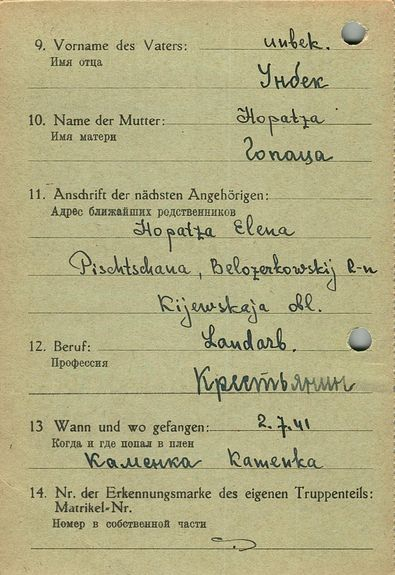 9. Vorname des Vaters: unbek.
Имя отца
Унбек
10. Name der Mutter: Hopatza
Имя матери
Гопаца
11. Anschrift der nächsten Angehörigen:
Адрес ближайших родственников
Hopatza Elena
Pischtschana, Belozerkowskij R-n
Kijewskaja obl.
12. Beruf: Landarb.
Профессия
Крестьянин
13 Wann und wo gefangen: 2.7.41
Когда и где попал в плен
Каменка Kamenka
14. Nr. der Erkennungsmarke des eigenen Truppenteils:
Matrikel-Nr.
Номер в собственной части